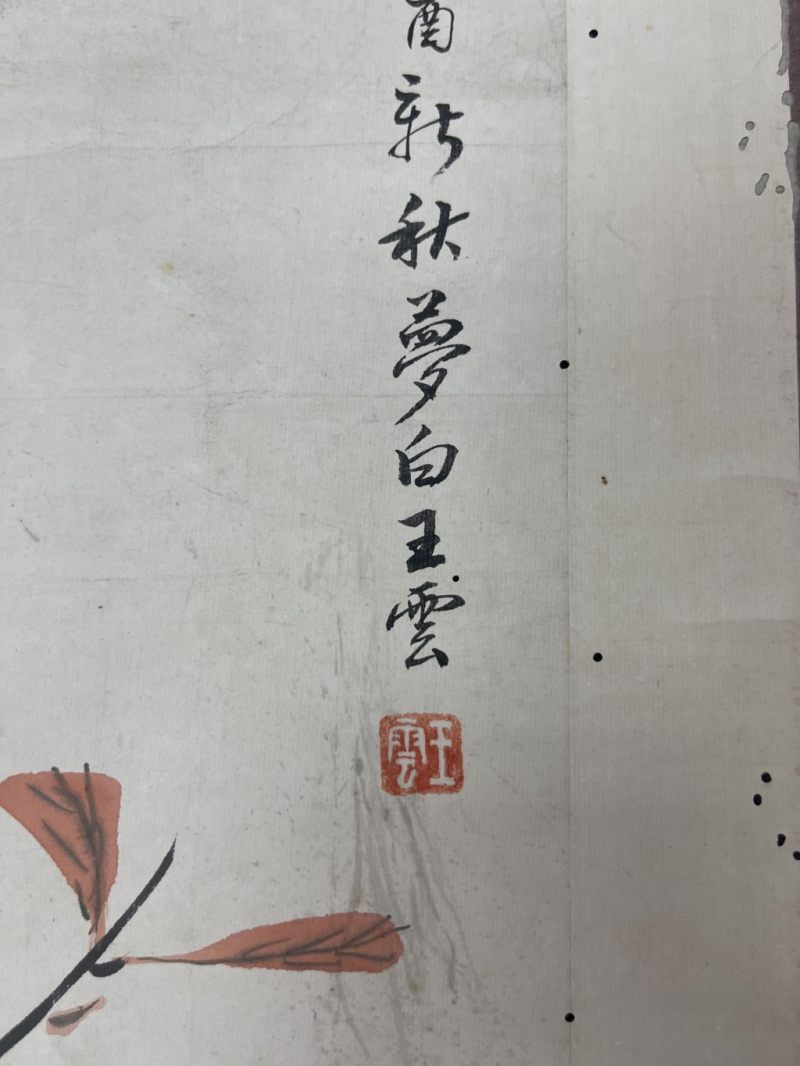 酉新秋夢白王雲
王雲